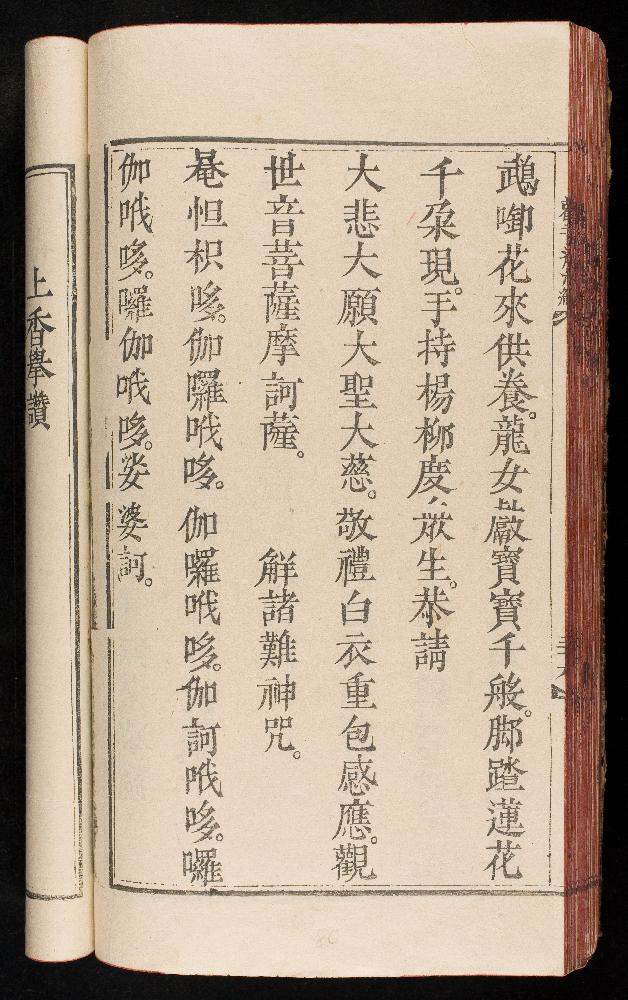 鵡啣花來供養。龍女獻寶寶千般。脚踏蓮花
千朶現。手持楊柳度众生。恭請
大悲大願大聖大慈。敬禮白衣重包感應。觀
世音菩薩摩訶薩。 解諸難神咒。
唵怛枳哆。伽囉哦哆。伽囉哦哆。伽訶哦哆。囉
伽哦哆。囉伽哦哆。娑婆訶。
上香舉讚